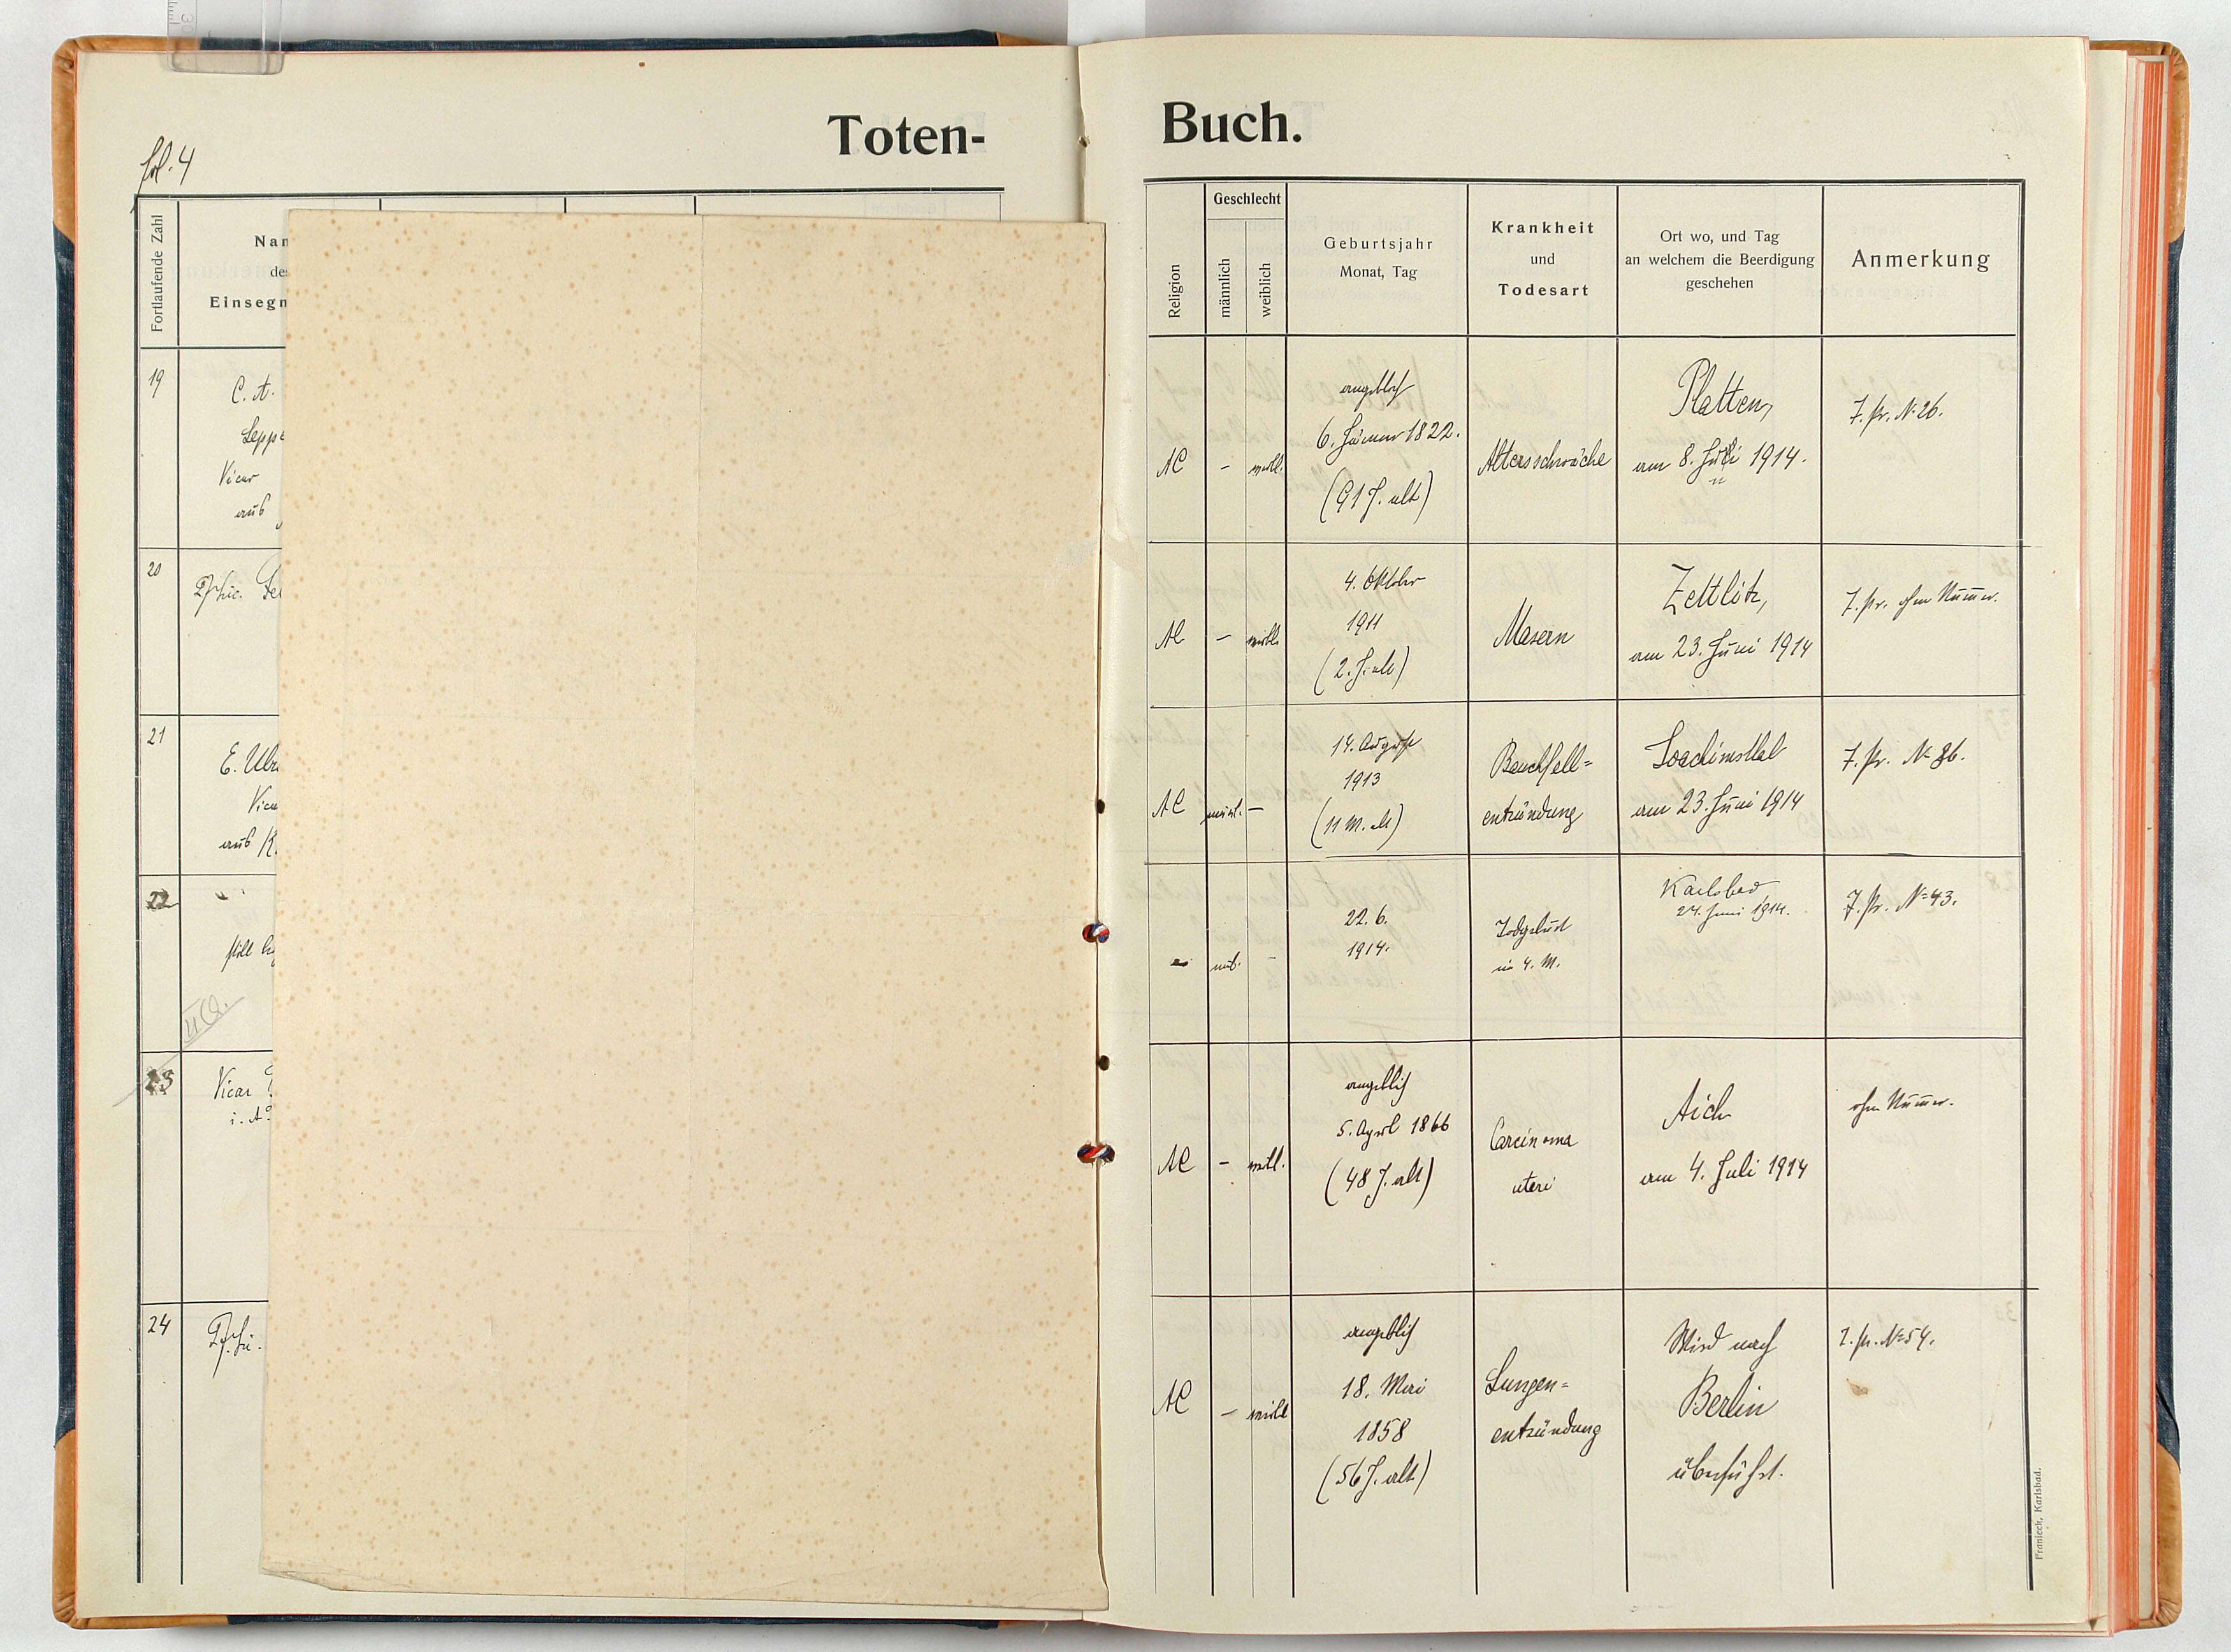 Toten-
fol. 4
Fortlaufende Zahl
Nan
des
Einsegn
19
C. A.
Lepp
Vicar
aus
20
21
E. Ulr
Vica
aus K.
22
still
23
Vicar
i. A.
24
Buch.
Religion
Geschlecht
männlich
weiblich
Geburtsjahr
Monat, Tag
Krankheit
und
Todesart
Ort wo, und Tag
an welchem die Beerdigung
geschehen
Anmerkung
AC
-
weibl.
angeblich
6. Jänner 1822.
(91 J. alt)
Altersschwäche
Platten,
am 8. Juli 1914.
Z. Pr. N. 26.
AC
-
weibl.
4. Oktober
1911
(2. J. alt)
Masern
Zettlitz,
am 23. Juni 1914
Z. Pr. ohne Nummer.
AC
männl.
-
14. August
1913
(11 M. alt)
Bauchfell=
entzündung
Joachimsthal
am 23. Juni 1914
Z. Pr. N. 86.
-
-
22. 6.
1914.
Todgeburt
im 4. M.
Karlsbad
24. Juni 1914.
Z. Pr. N= 43.
AC
-
weibl.
angeblich
5. April 1866
(48 J. alt)
Carcinoma
uteri
Aich
am 4. Juli 1914
ohne Nummer.
AC
-
weibl
angeblich
18. Mai
1858
(56 J. alt)
Lungen=
entzündung
Wird nach
Berlin
überführt.
Z. Pr. N= 54.
Franieck, Karlsbad.